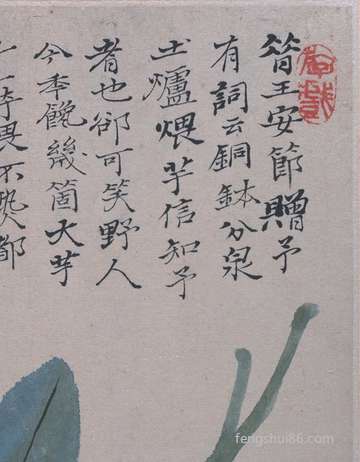 昔王安節贈予
有詞云銅鉢分泉
土爐煨芋信知予
者也卻可笑野人
今秊饞幾箇大芋
畏不
fengshui86.com